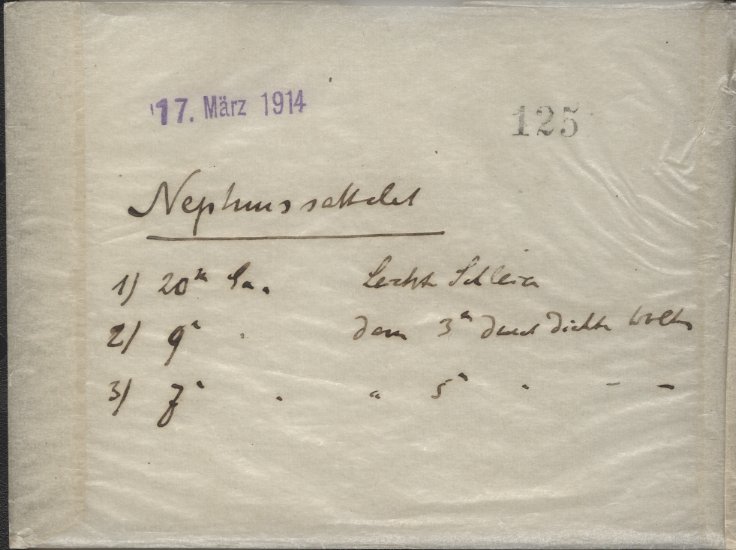 17. März 1914
125
Neptunssattelit
1) 20ᵐ Leichte Schleier
2) 9 " dann 3ᵐ durch dichte Wolken
3) 7 " " 5 " – –